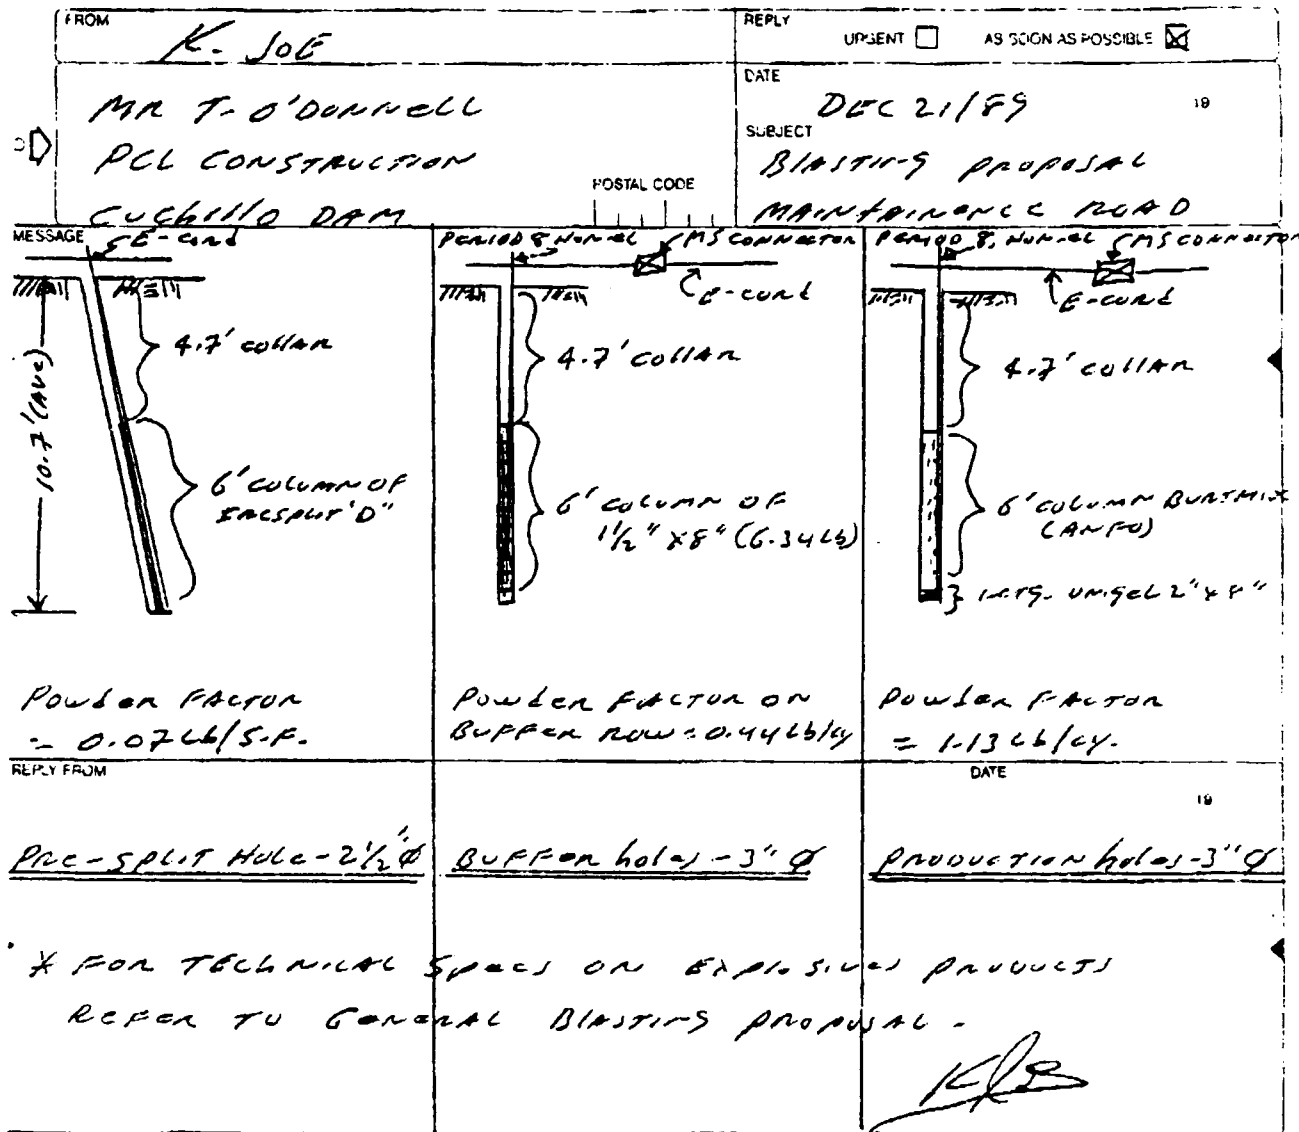 FROM
K. JOE
REPLY
URGENT AS SOON AS POSSIBLE
MR T. O'DONNELL
PCL CONSTRUCTION
CUCHILLO DAM
POSTAL CODE
DATE
DEC 21/89 19
SUBJECT
BLASTING PROPOSAL
MAINTAINENCE ROAD
MESSAGE
E-cord
10.7' (AVE)
4.7' COLLAR
6' COLUMN OF
'D"
Powder FACTOR
= 0.07 Lb/S.F.
PERIOD 8, NONEL MS CONNECTOR
E-cord
4.7' COLLAR
6' COLUMN OF
1 1/2" x 8" (6.34 Lb)
Powder FACTOR ON
BUFFER ROW = 0.44 Lb/cy
PERIOD 8, NONEL MS CONNECTOR
E-cord
4.7' COLLAR
6' COLUMN
(ANFO)
UNIGEL 2" x 8"
Powder FACTOR
= 1.13 Lb/cy.
REPLY FROM
DATE
19
PRE-SPLIT HOLE - 2 1/2" Ø
BUFFER holes - 3" Ø
PRODUCTION holes - 3" Ø
* FOR TECHNICAL SPECS ON EXPLOSIVES PRODUCTS
REFER TO GENERAL BLASTING PROPOSAL.